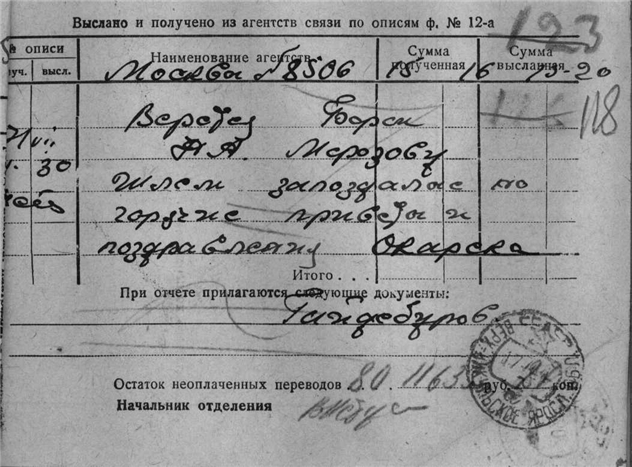 Выслано и получено из агентств связи по описям ф. № 12-а
123
№ описи
Наименование агентств
Сумма полученная
Сумма высланная
луч. высл.
Москва 8506 15 16 15-20
118
Борок
30 Н.А. Морозову
Шлем запоздалые но
горячие приветы и
поздравления Скарская
Итого . . .
При отчете прилагаются следующие документы:
Гайдебуров
Остаток неоплаченных переводов 80 1163 руб. коп.
Начальник отделения